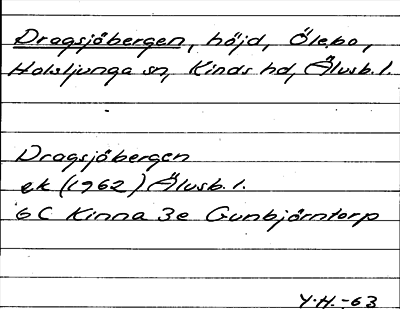 Dragsjöbergen, höjd, Ölebo,
Holsljunga sn, Kinds hd, Älvsb. l.
Dragsjöbergen
ek (1962) Älvsb. l.
6C Kinna 3e Gunbjörntorp
Y.H. -63